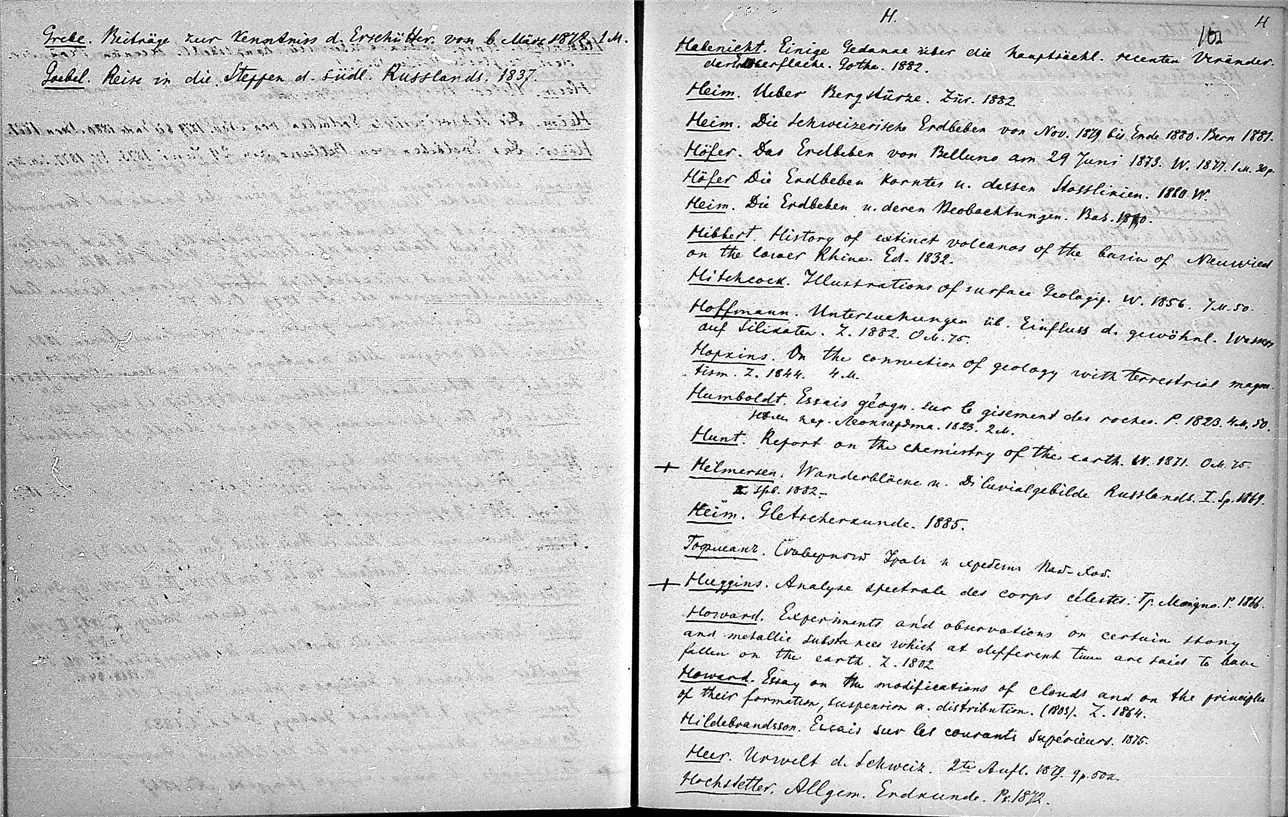 Grebe. Beiträge zur Kenntniss d. Erschütter. von 6 März 1872. 1 M.
Goebel. Reise in die Steppen d. südl. Russlands. 1837.
H.
H
102
Habenicht. Einige Gedanae über die hauptsächl. recenten Veränder.
der Erdoberfläche. Gotha. 1882.
Heim. Ueber Bergstürze. Zür. 1882.
Heim. Die Schweizerische Erdbeben von Nov. 1879 bis Ende 1880. Bern 1881.
Höfer. Das Erdbeben von Belluno am 29 Juni 1873. W. 1877. 1 M. 30 p.
Höfer Die Erdbeben Kärntes u. dessen Stosslinien. 1880. W.
Heim. Die Erdbeben u. deren Beobachtungen. Bas. 1880.
Hibbert. History of extinct volcanos of the basin of Neuwied
on the lower Rhine. Ed. 1832.
Hitchcock. Illustrations of surface Geology. W. 1856. 7 M. 50.
Hoffmann. Untersuchungen üb. Einfluss d. gewöhnl. Wasser
auf Silikaten. Z. 1882. 0 M. 75.
Hopkins. On the connection of geology with terrestrial magne
tism. Z. 1844. 4 M.
Humboldt. Essais géogn. sur le gisement des roches. P. 1823. 4 M. 50.
пер. Леонгардта. 1823. 2 M.
Hunt. Report on the chemistry of the earth. W. 1871. 0 M. 75.
+ Helmersen. Wanderblöcke u. Diluvialgebilde Russlands. I. Sp. 1869.
II. Spb. 1882.—
Heim. Gletscherkunde. 1885.
Гофманъ. Сѣверный Уралъ и хребетъ Пай-Хой.
+ Huggins. Analyse spectrale des corps célestes. Tr. Moigno. P. 1866.
Howard. Experiments and observations on certain stony
and metallic substances which at different time are said to have
fallen on the earth. Z. 1802.
Howard. Essay on the modifications of clouds and on the principles
of their formation, suspension a. distribution. (1803). Z. 1864.
Hildebrandsson. Essais sur les courants supérieurs. 1875.
Heer. Urwelt d. Schweiz. 2te Aufl. 1879. 9 p. 50 к.
Hochstetter. Allgem. Erdkunde. Pr. 1872.